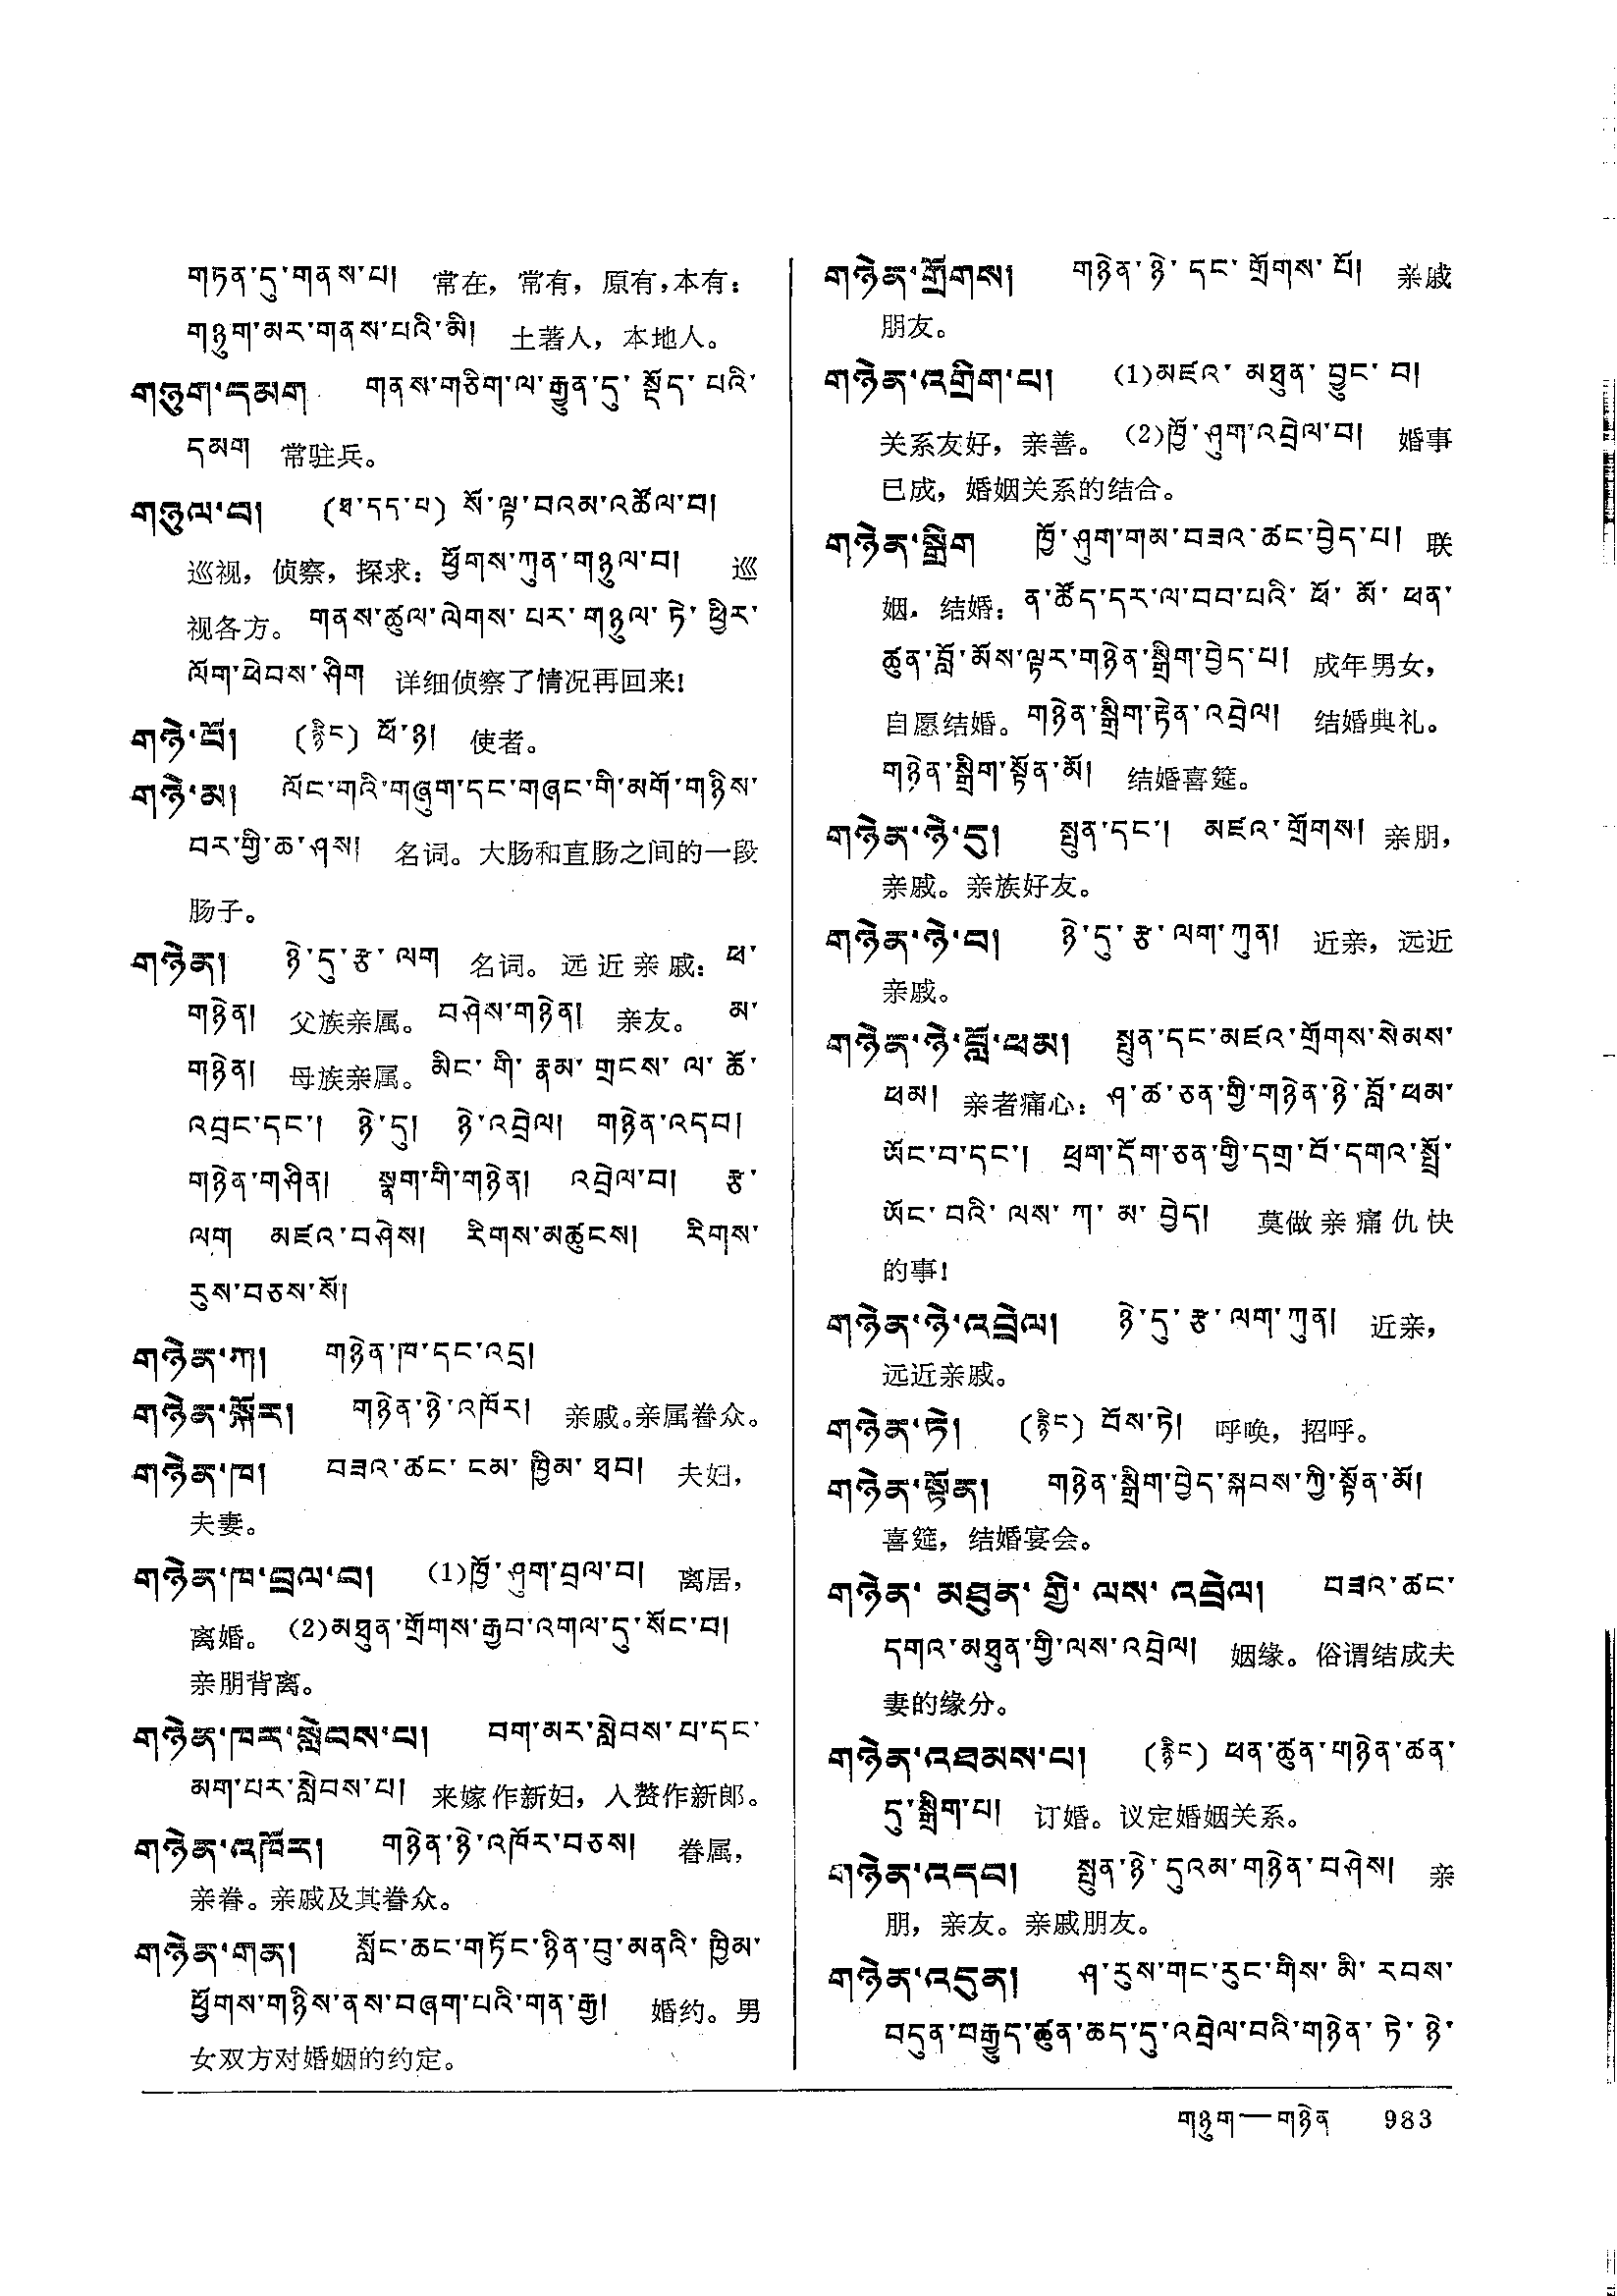 གཏན་དུ་གནས་པ། 常在，常有，原有，本有：
གཉུག་མར་གནས་པའི་མི། 土著人，本地人。
གཉུག་དམག གནས་གཅིག་ལ་རྒྱུན་དུ་སྡོད་པའི་
དམག 常驻兵。
གཉུལ་བ། (ཐ་དད་པ) སོ་ལྟ་བའམ་འཚོལ་བ།
巡视，侦察，探求：ཕྱོགས་ཀུན་གཉུལ་བ། 巡
视各方。གནས་ཚུལ་ལེགས་པར་གཉུལ་ཏེ་ཕྱིར་
ལོག་ཕེབས་ཤིག 详细侦察了情况再回来!
གཉེ་བོ། (རྙིང) ཕོ་ཉ། 使者。
གཉེ་མ། ལོང་གའི་གཞུག་དང་གཞང་གི་མགོ་གཉིས་
བར་གྱི་ཆ་ཤས། 名词。大肠和直肠之间的一段
肠子。
གཉེན། ཉེ་དུ་རྩ་ལག 名词。远近亲戚：ཕ་
གཉེན། 父族亲属。བཤེས་གཉེན། 亲友。མ་
གཉེན། 母族亲属。མིང་གི་རྣམ་གྲངས་ལ་ཚོ་
འབྲང་དང་། ཉེ་དུ། ཉེ་འབྲེལ། གཉེན་འདབ།
གཉེན་གཤིན། སྣག་གི་གཉེན། འབྲེལ་བ། རྩ་
ལག མཛའ་བཤེས། རིགས་མཚུངས། རིགས་
རུས་བཅས་སོ།
གཉེན་ཀ། གཉེན་ཁ་དང་འདྲ།
གཉེན་སྐོར། གཉེན་ཉེ་འཁོར། 亲戚。亲属眷众。
གཉེན་ཁ། བཟའ་ཚང་ངམ་ཁྱིམ་ཐབ། 夫妇，
夫妻。
གཉེན་ཁ་བྲལ་བ། (1)ཁྱོ་ཤུག་བྲལ་བ། 离居，
离婚。(2)མཐུན་གྲོགས་རྒྱབ་འགལ་དུ་སོང་བ།
亲朋背离。
གཉེན་ཁར་སླེབས་པ། བག་མར་སླེབས་པ་དང་
མག་པར་སླེབས་པ། 来嫁作新妇，入赘作新郎。
གཉེན་འཁོར། གཉེན་ཉེ་འཁོར་བཅས། 眷属，
亲眷。亲戚及其眷众。
གཉེན་གན། སློང་ཆང་གཏོང་ཉིན་བུ་མནའི་ཁྱིམ་
ཕྱོགས་གཉིས་ནས་བཞག་པའི་གན་རྒྱ། 婚约。男
女双方对婚姻的约定。
གཉེན་གྲོགས། གཉེན་ཉེ་དང་གྲོགས་པོ། 亲戚
朋友。
གཉེན་འགྲིག་པ། (1)མཛའ་མཐུན་བྱུང་བ།
关系友好，亲善。(2)ཁྱོ་ཤུག་འབྲེལ་བ། 婚事
已成，婚姻关系的结合。
གཉེན་སྒྲིག ཁྱོ་ཤུག་གམ་བཟའ་ཚང་བྱེད་པ། 联
姻，结婚：ན་ཚོད་དར་ལ་བབ་པའི་ཕོ་མོ་ཕན་
ཚུན་བློ་མོས་ལྟར་གཉེན་སྒྲིག་བྱེད་པ། 成年男女，
自愿结婚。གཉེན་སྒྲིག་རྟེན་འབྲེལ། 结婚典礼。
གཉེན་སྒྲིག་སྟོན་མོ། 结婚喜筵。
གཉེན་ཉེ་དུ། སྤུན་དང་། མཛའ་གྲོགས། 亲朋，
亲戚。亲族好友。
གཉེན་ཉེ་བ། ཉེ་དུ་རྩ་ལག་ཀུན། 近亲，远近
亲戚。
གཉེན་ཉེ་བློ་ཕམ། སྤུན་དང་མཛའ་གྲོགས་སེམས་
ཕམ། 亲者痛心：ཤ་ཚ་ཅན་གྱི་གཉེན་ཉེ་བློ་ཕམ་
ཡོང་བ་དང་། ཕྲག་དོག་ཅན་གྱི་དགྲ་བོ་དགའ་སྤྲོ་
ཡོང་བའི་ལས་ཀ་མ་བྱེད། 莫做亲痛仇快
的事!
གཉེན་ཉེ་འབྲེལ། ཉེ་དུ་རྩ་ལག་ཀུན། 近亲，
远近亲戚。
གཉེན་ཏེ། (རྙིང) བོས་ཏེ། 呼唤，招呼。
གཉེན་སྟོན། གཉེན་སྒྲིག་བྱེད་སྐབས་ཀྱི་སྟོན་མོ།
喜筵，结婚宴会。
གཉེན་མཐུན་གྱི་ལས་འབྲེལ། བཟའ་ཚང་
དགའ་མཐུན་གྱི་ལས་འབྲེལ། 姻缘。俗谓结成夫
妻的缘分。
གཉེན་འཐམས་པ། (རྙིང) ཕན་ཚུན་གཉེན་ཚན་
དུ་སྒྲིག་པ། 订婚。议定婚姻关系。
གཉེན་འདབ། སྤུན་ཉེ་དུའམ་གཉེན་བཤེས། 亲
朋，亲友。亲戚朋友。
གཉེན་འདུན། ཤ་རུས་གང་རུང་གིས་མི་རབས་
བདུན་བརྒྱུད་ཚུན་ཆད་དུ་འབྲེལ་བའི་གཉེན་ཏེ་ཉེ་
གཉུག—གཉེན 983